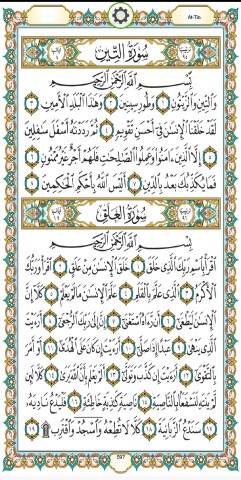 At-Tin
سُورَةُ التِّينِ
بِسْمِ اللَّهِ الرَّحْمَٰنِ الرَّحِيمِ
وَالتِّينِ وَالزَّيْتُونِ ١ وَطُورِ سِينِينَ ٢ وَهَٰذَا الْبَلَدِ الْأَمِينِ ٣
لَقَدْ خَلَقْنَا الْإِنسَٰنَ فِي أَحْسَنِ تَقْوِيمٍ ٤ ثُمَّ رَدَدْنَٰهُ أَسْفَلَ سَٰفِلِينَ
٥ إِلَّا الَّذِينَ ءَامَنُوا وَعَمِلُوا الصَّٰلِحَٰتِ فَلَهُمْ أَجْرٌ غَيْرُ مَمْنُونٍ ٦
فَمَا يُكَذِّبُكَ بَعْدُ بِالدِّينِ ٧ أَلَيْسَ اللَّهُ بِأَحْكَمِ الْحَٰكِمِينَ ٨
سُورَةُ العَلَقِ
بِسْمِ اللَّهِ الرَّحْمَٰنِ الرَّحِيمِ
اقْرَأْ بِاسْمِ رَبِّكَ الَّذِي خَلَقَ ١ خَلَقَ الْإِنسَٰنَ مِنْ عَلَقٍ ٢ اقْرَأْ وَرَبُّكَ
الْأَكْرَمُ ٣ الَّذِي عَلَّمَ بِالْقَلَمِ ٤ عَلَّمَ الْإِنسَٰنَ مَا لَمْ يَعْلَمْ ٥ كَلَّا إِنَّ
الْإِنسَٰنَ لَيَطْغَىٰ ٦ أَن رَّءَاهُ اسْتَغْنَىٰ ٧ إِنَّ إِلَىٰ رَبِّكَ الرُّجْعَىٰ ٨ أَرَءَيْتَ
الَّذِي يَنْهَىٰ ٩ عَبْدًا إِذَا صَلَّىٰ ١٠ أَرَءَيْتَ إِن كَانَ عَلَى الْهُدَىٰ ١١ أَوْ أَمَرَ
بِالتَّقْوَىٰ ١٢ أَرَءَيْتَ إِن كَذَّبَ وَتَوَلَّىٰ ١٣ أَلَمْ يَعْلَم بِأَنَّ اللَّهَ يَرَىٰ ١٤ كَلَّا لَئِن
لَّمْ يَنتَهِ لَنَسْفَعًا بِالنَّاصِيَةِ ١٥ نَاصِيَةٍ كَٰذِبَةٍ خَاطِئَةٍ ١٦ فَلْيَدْعُ نَادِيَهُ
١٧ سَنَدْعُ الزَّبَانِيَةَ ١٨ كَلَّا لَا تُطِعْهُ وَاسْجُدْ وَاقْتَرِب ۩ ١٩
597